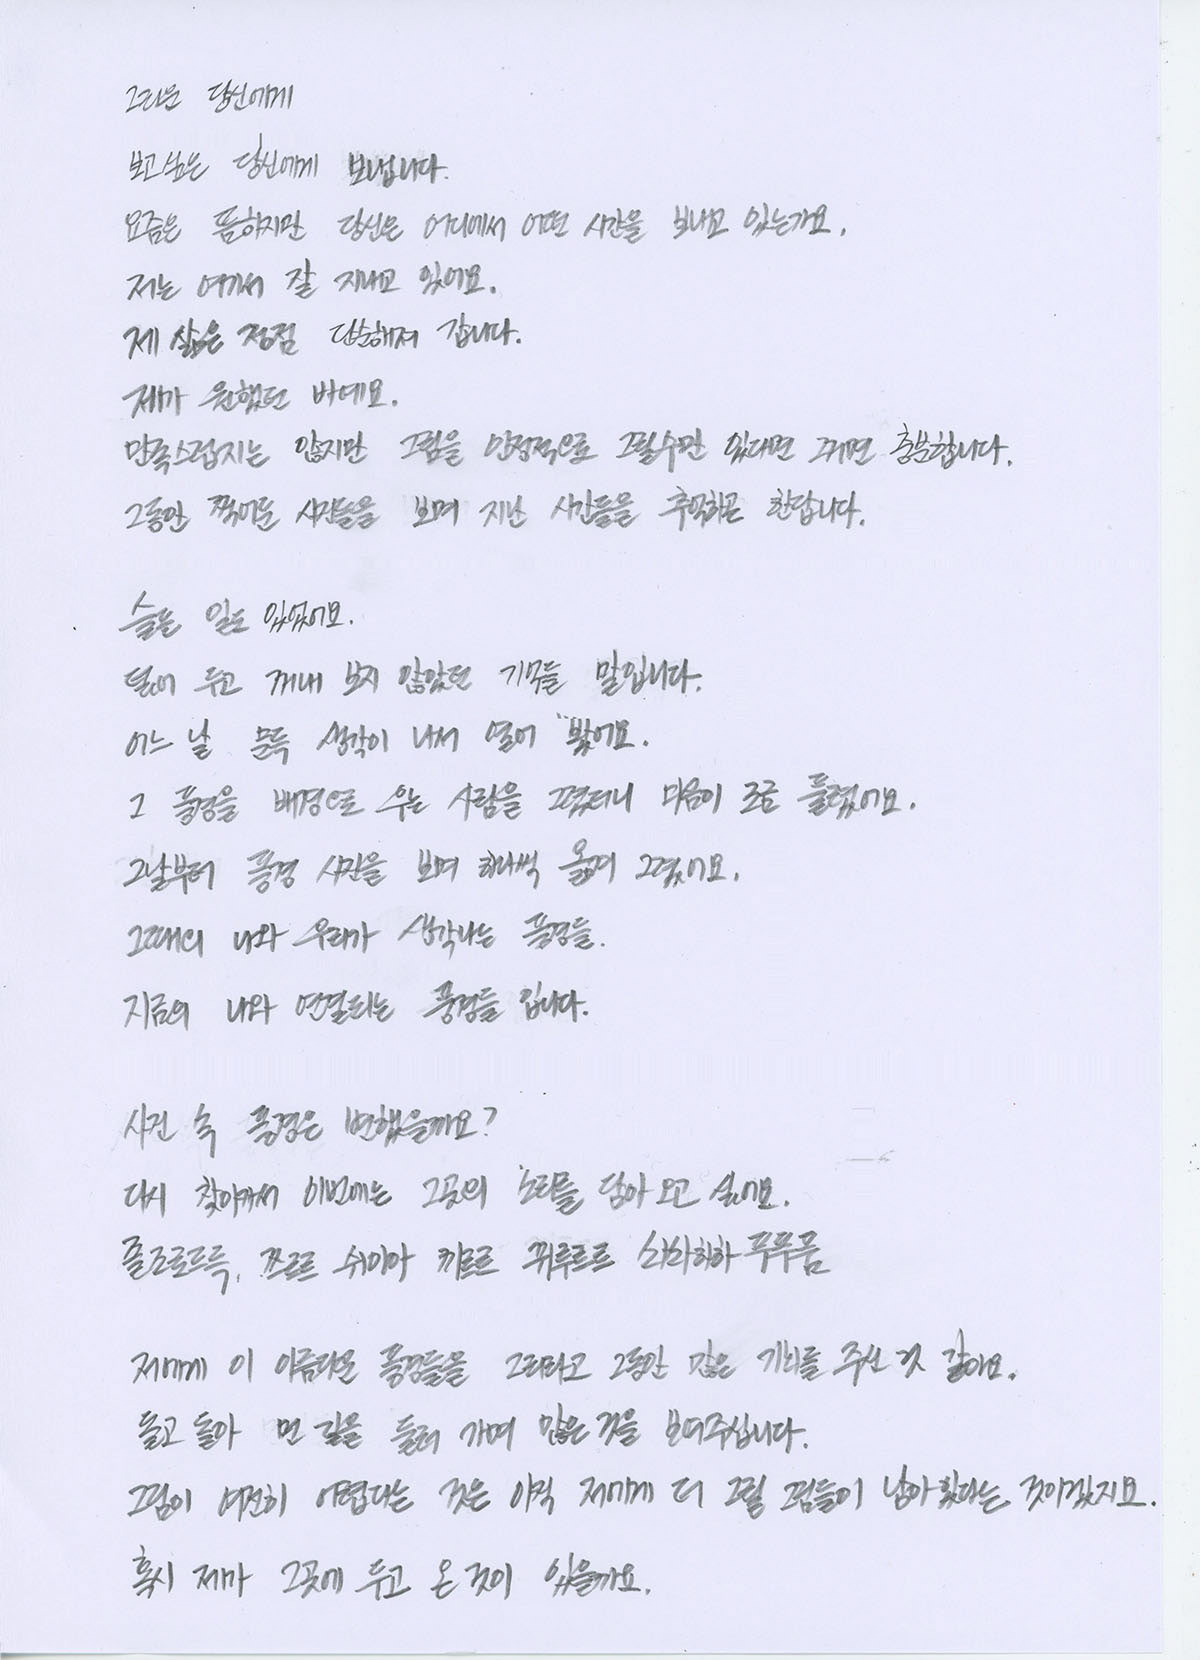 그리운 당신에게
보고싶은 당신에게 보냅니다.
요즘은 뜸하지만 당신은 어디에서 어떤 시간을 보내고 있는가요.
저는 여기서 잘 지내고 있어요.
제 삶은 점점 단순해져 갑니다.
제가 원했던 바예요.
만족스럽지는 않지만 그림을 안정적으로 그릴수만 있다면 그거면 충분합니다.
그동안 찍어둔 사진들을 보며 지난 시간들을 추억하곤 한답니다.
슬픈 일도 있었어요.
덮어 두고 꺼내 보지 않았던 기억들 말입니다.
어느 날 문득 생각이 나서 열어 봤어요.
그 풍경을 배경으로 우는 사람을 그렸더니 마음이 조금 풀렸어요.
그날부터 풍경 사진을 보며 하나씩 옮겨 그렸어요.
그때의 나와 우리가 생각나는 풍경들.
지금의 나와 연결되는 풍경들 입니다.
사진 속 풍경은 변했을까요?
다시 찾아가서 이번에는 그곳의 소리를 담아 오고 싶어요.
졸조로드득, 쯔르르 쉬이아 끼르르 뀌루르르 솨솨하하 푸푸품
저에게 이 아름다운 풍경들을 그리라고 그동안 많은 기회를 주신 것 같아요.
돌고 돌아 먼 길을 둘러 가며 많은 것을 보여주십니다.
그림이 여전히 어렵다는 것은 아직 저에게 더 그릴 그림들이 남아있다는 것이겠지요.
혹시 제가 그곳에 두고 온 것이 있을까요.